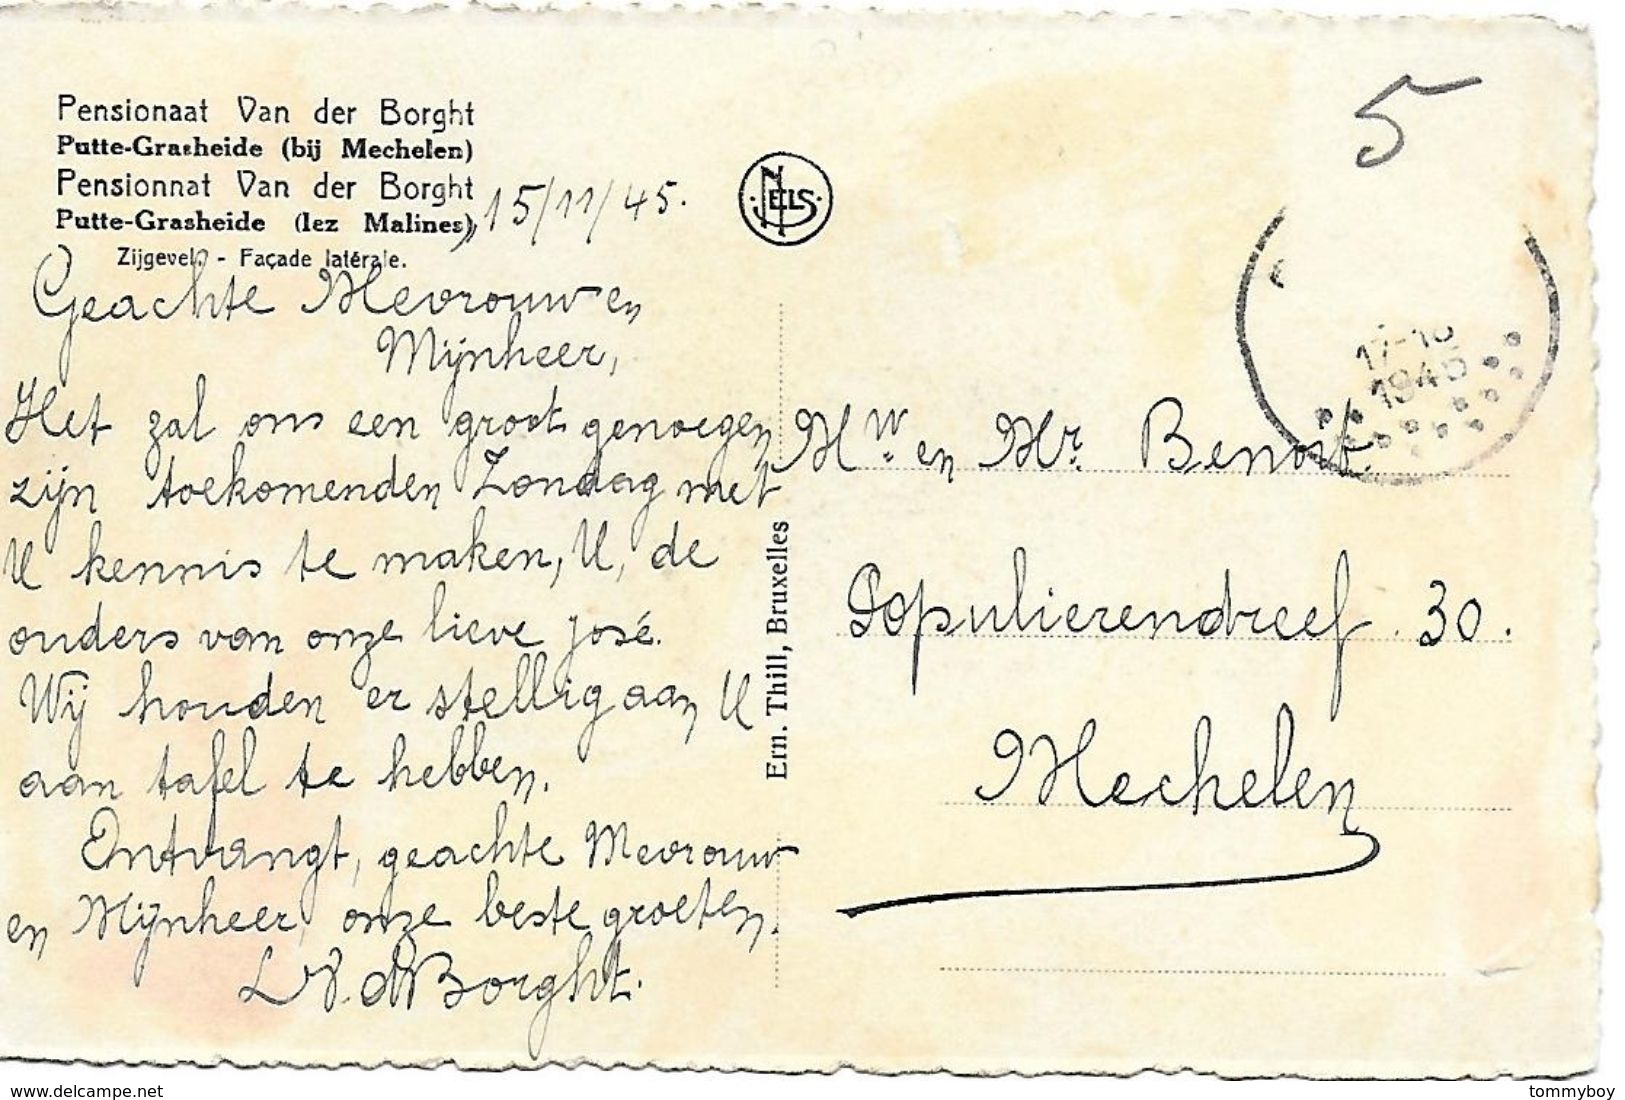 Pensionaat Van der Borght
Putte-Grasheide (bij Mechelen)
Pensionnat Van der Borght
Putte-Grasheide (lez Malines),
15/11/45.
Zijgevel - Façade latérale.
NELS
5
Geachte Mevrouw en
Mijnheer,
Het zal ons een groot genoegen
zijn toekomenden Zondag met
U kennis te maken, U, de
ouders van onze lieve josé.
Wij houden er stellig aan U
aan tafel te hebben.
Ontvangt, geachte Mevrouw
en Mijnheer, onze beste groeten.
L V. d Borght.
Ern. Thill, Bruxelles
17-18
1945
Mw. en Mr. Benoit.
Populierendreef. 30.
Mechelen
www.delcampe.net
tommyboy